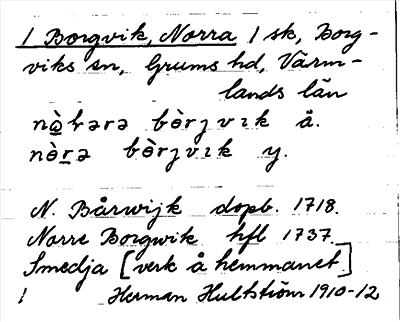 / Borgvik, Norra / sk, Borg-
viks sn, Grums hd, Värm-
lands län
nò̱rərə bòrʒvɪk å.
nòṟə bòrʒvɪk y.
N. Bårwijk dopb. 1718.
Norre Borgwik hfl 1737.
Smedja [verk å hemmanet]
/ Herman Hultström 1910-12